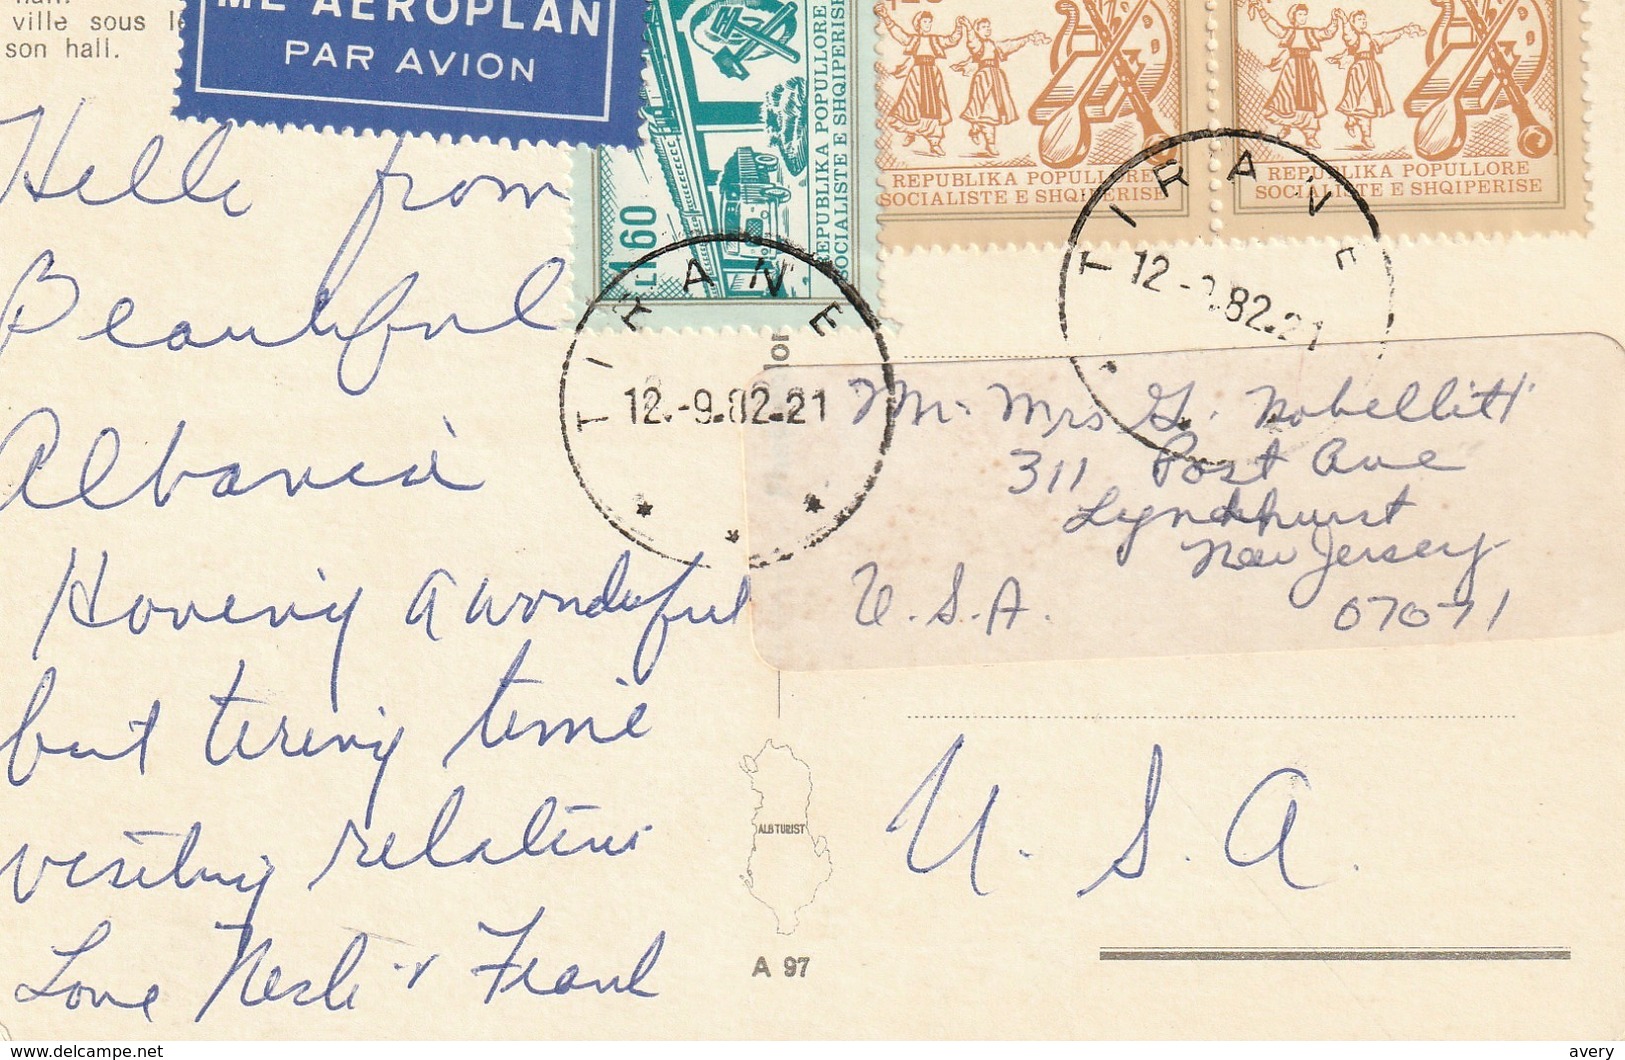 ville sous
son hall.
ME AEROPLAN
PAR AVION
1.60
REPUBLIKA POPULLORE
SOCIALISTE E SHQIPERISE
REPUBLIKA POPULLORE
SOCIALISTE E SHQIPERISE
REPUBLIKA POPULLORE
SOCIALISTE E SHQIPERISE
TIRANE
12.-9.82-21
TIRANE
12 - .82.21
Hello from
Beautiful
Albania
Having a wonderful
but tiring time
visiting relatives
Love & Frank
Mr Mrs G.
311 Post Ave
Lyndhurst
New Jersey
U.S.A. 07071
U. S. A.
ALBTURIST
A 97
picclick.com
avery